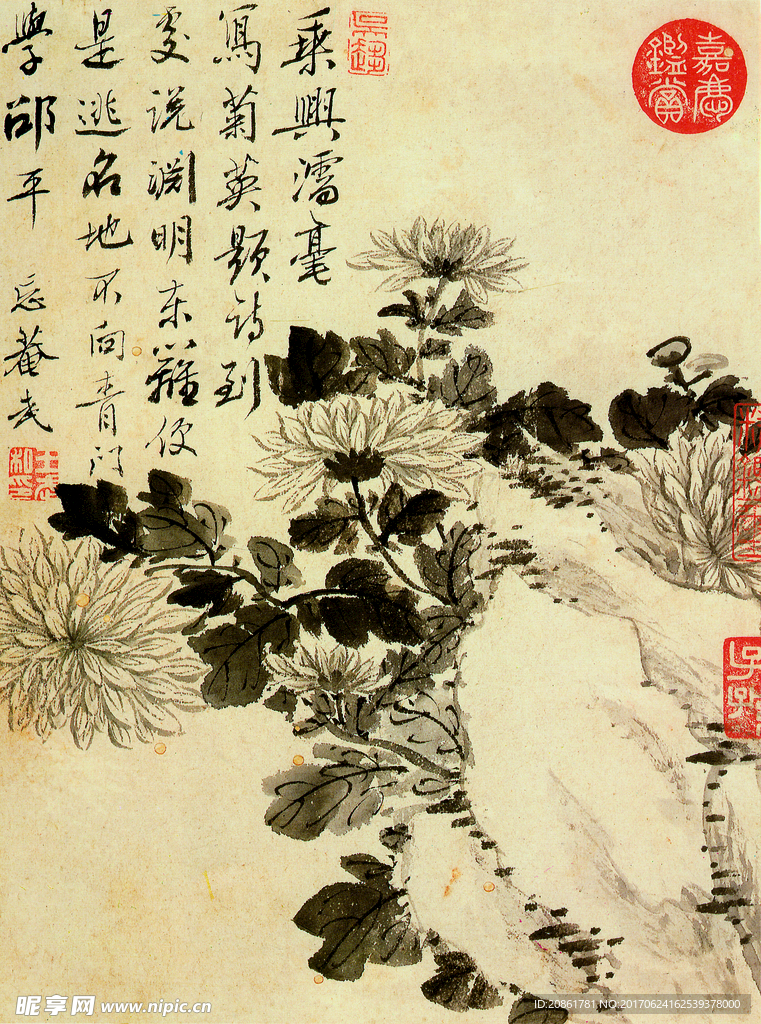 乘興濡毫
寫菊英題詩到
處説淵明東籬便
是逃名地不向青門
學邵平 忘菴武
嘉慶鑑賞
昵享网 www.nipic.cn
ID:20861781.NO:20170624162539378000